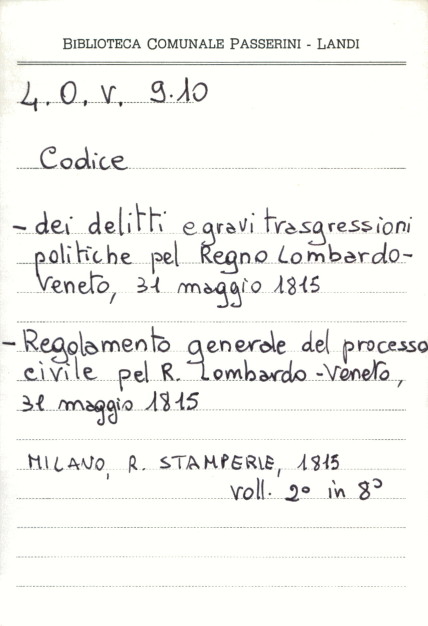 BIBLIOTECA COMUNALE PASSERINI - LANDI
4. O. V. 9.10
Codice
- dei delitti e gravi trasgressioni
politiche pel Regno Lombardo-
Veneto, 31 maggio 1815
- Regolamento generale del processo
civile pel R. Lombardo-Veneto,
31 maggio 1815
MILANO, R. STAMPERIE, 1815
voll. 2º in 8º